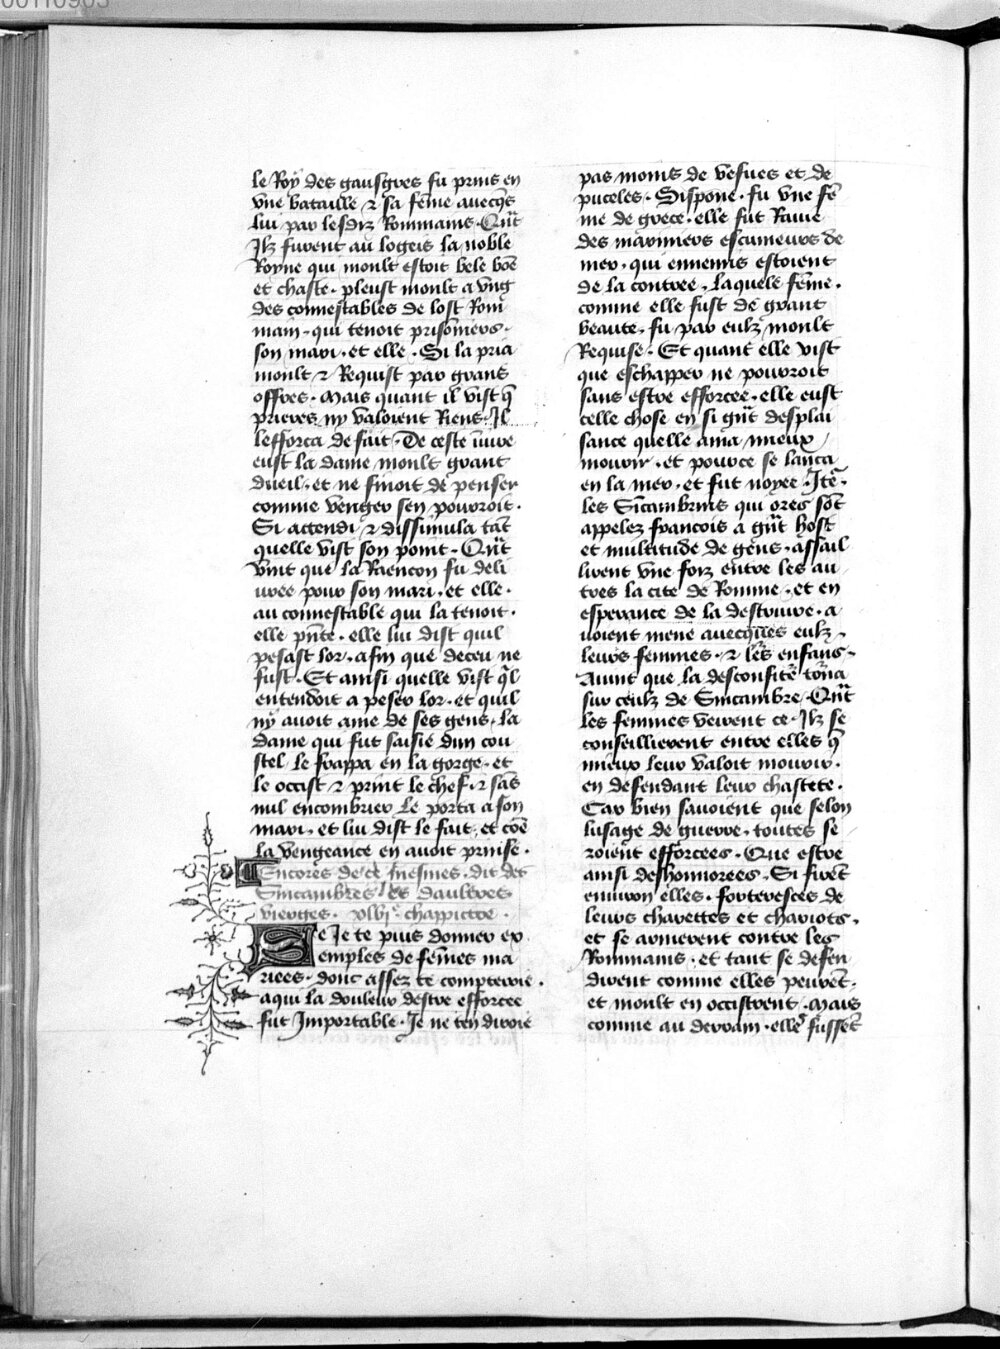 le Roy des gausgres fu prins en
vne bataille ⁊ sa fēme auecq̄s
lui par lesdiz Rommains · Qn̄t
Ilz furent au logeis la noble
Royne qui moult estoit bele bōe
et chaste · pleust moult a vng
des connestables de lost Rom
main · qui tenoit prisonniers ·
son mari · et elle · Si la pria
moult ⁊ Requist par grans
offres · Mais quant il vist q̄
prieres ny valoient Riens · Il
lefforca de fait · De ceste iniure
eust la dame moult grant
dueil · et ne finoit de penser
comme venger sen pourroit ·
Si actendi ⁊ dissimula tāt
quelle vist son point · Qn̄t
vint que la Raencon fu deli
uree pour son mari · et elle ·
au connestable qui la tenoit ·
elle pn̄te · elle lui dist quil
pesast lor · afin que deceu ne
fust · Et ainsi quelle vist q̄l
entendoit a peser lor · et quil
ny auoit ame de ses gens · la
dame qui fut saisie dun cou
stel le frappa en la gorge · et
le occist ⁊ print le chef · ⁊ sās
nul encombrier le porta a son
mari · et lui dist le fait · et cōe
la vengeance en auoit prinse ·
Encores de ce mesmes · dit des
Sincambres et daultres
vierges · xlvjᵉ · chappictre ·
Se Je te puis donner ex
emples de fēmes ma
riees · donc assez te compteroie ·
a qui la douleur destre efforcee
fut Importable · Je ne ten diroie
pas moins de vefues et de
puceles · Sispone · fu vne fē
me de grece · elle fut Rauie
des mariniers escumeurs de
mer · qui ennemis estoient
de la contree · laquele fēme ·
comme elle fust de grant
beaute · fu par eulz moult
Requise · Et quant elle vist
que eschapper ne pourroit
sans estre efforcee · elle eust
celle chose en si gn̄t desplai
sance quelle ama mieux
mourir · et pource se lanca
en la mer · et fut noyee · Itē ·
les Sincambrins qui ores sōt
appelez francois a gn̄t host
et multitude de gens · assail
lirent vne foiz entre les au
tres la cite de Romme · et en
esperance de la destruire · a
uoient mene auecques eulz ·
leurs femmes · ⁊ le's enfans ·
Auint que la desconfite to'na
sur ceulz de Sincambre · Qn̄t
les femmes veirent ce · Ilz se
conseillierent entre elles q̄
mieux leur valoit mourir ·
en defendant leur chastete ·
Car bien sauoient que selon
lusage de guerre · toutes se
roient efforcees · Que estre
ainsi deshonnorees · Si firēt
enuiron elles · forteresces de
leurs charettes et chariots ·
et se armerent contre les
Rommains · et tant se defen
dirent comme elles peurēt ·
et moult en occistrent · Mais
comme au derrain · elles fussēt